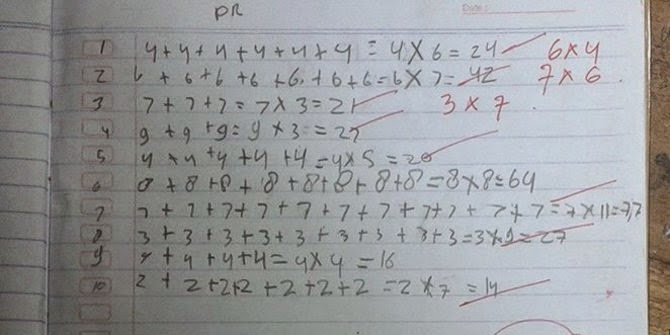 PR
Date:
1 4+4+4+4+4+4 = 4×6=24 6×4
2 6+6+6+6+6+6+6=6×7=42 7×6
3 7+7+7=7×3=21 3×7
4 9+9+9=9×3=27
5 4×4+4+4+4=4×5=20
6 8+8+8+8+8+8+8+8=8×8=64
7 7+7+7+7+7+7+7+7+7+7+7=7×11=77
8 3+3+3+3+3+3+3+3+3=3×9=27
9 4+4+4+4=4×4=16
10 2+2+2+2+2+2+2=2×7=14